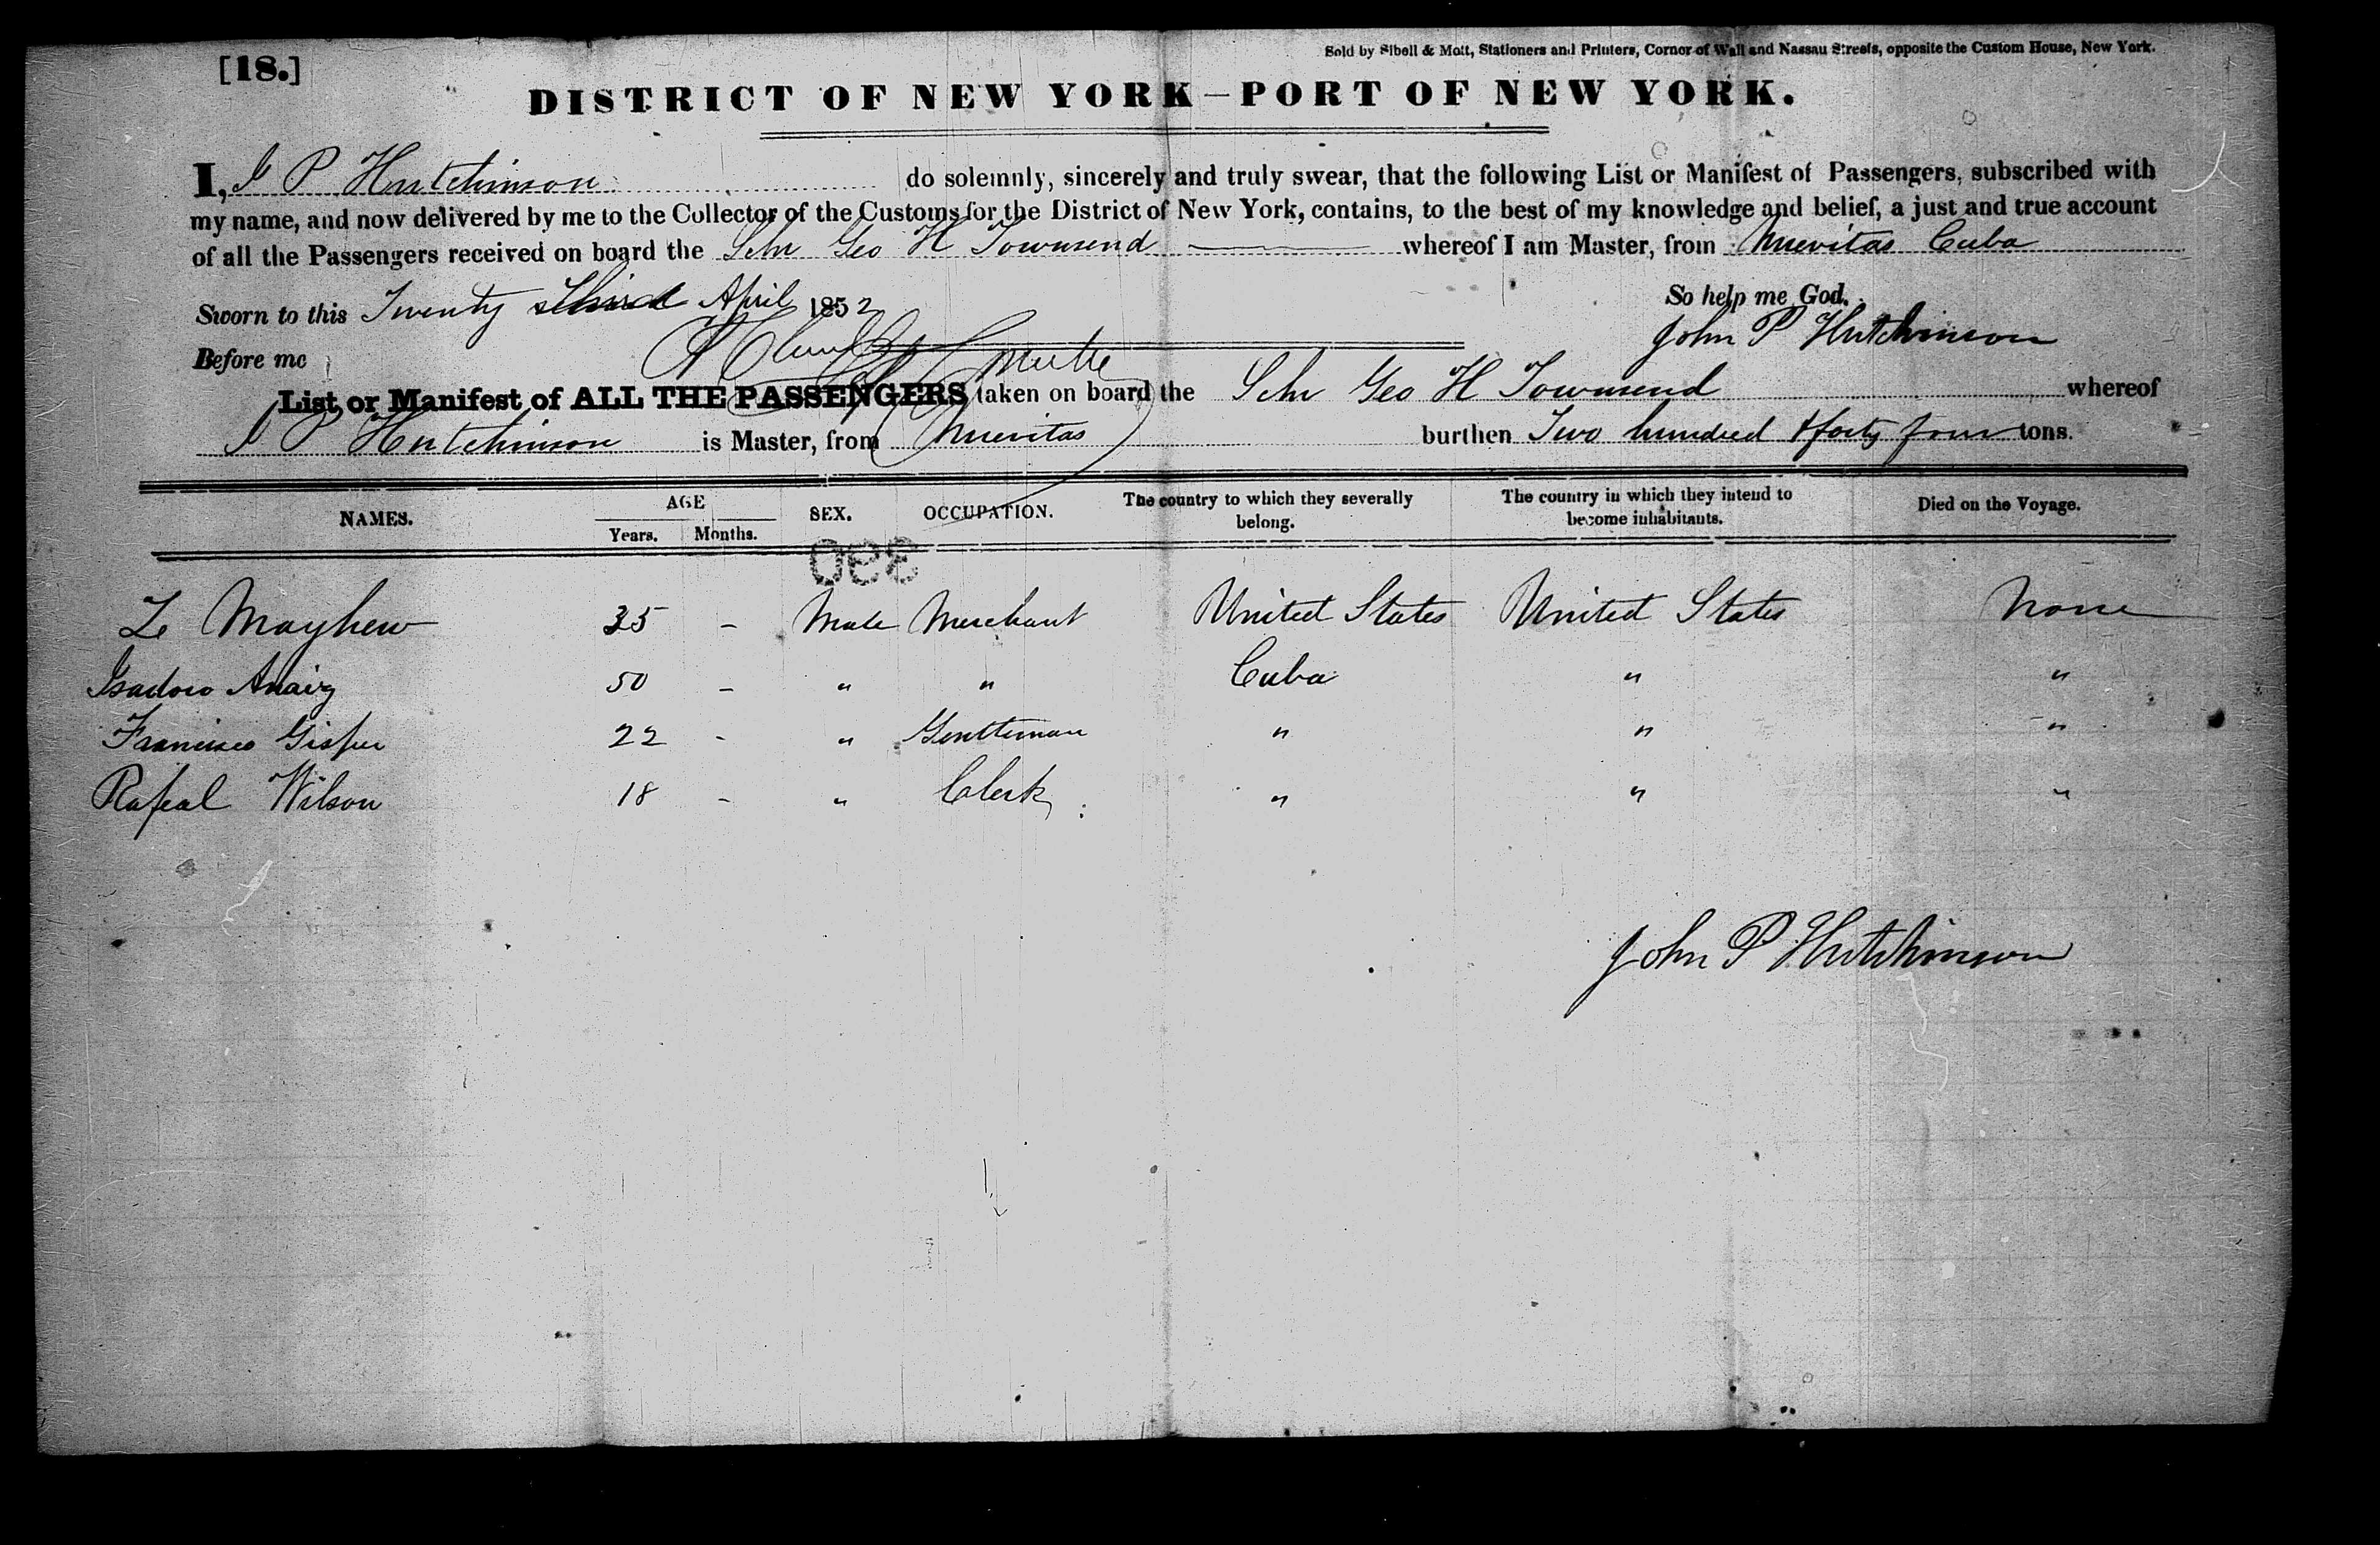 [18.]
Sold by Sibell & Mott, Stationers and Printers, Corner of Wall and Nassau Streets, opposite the Custom House, New York.
DISTRICT OF NEW YORK—PORT OF NEW YORK.
I, J P Hutchinson do solemnly, sincerely and truly swear, that the following List or Manifest of Passengers, subscribed with
my name, and now delivered by me to the Collector of the Customs for the District of New York, contains, to the best of my knowledge and belief, a just and true account
of all the Passengers received on board the Schr Geo H Townsend whereof I am Master, from Nuevitas Cuba
Sworn to this Twenty third April 1852 So help me God.
Before me John P Hutchinson
List or Manifest of ALL THE PASSENGERS taken on board the Schr Geo H Townsend whereof
J P Hutchinson is Master, from Nuevitas burthen Two hundred & forty four tons.
NAMES. AGE SEX. OCCUPATION. The country to which they severally belong. The country in which they intend to become inhabitants. Died on the Voyage.
Years. Months.
330
Z Mayhew 35 - Male Merchant United States United States None
Isadoro 50 - " " Cuba " "
Francisco 22 - " Gentleman " " "
Rafeal Wilson 18 - " Clerk " " "
John P Hutchinson